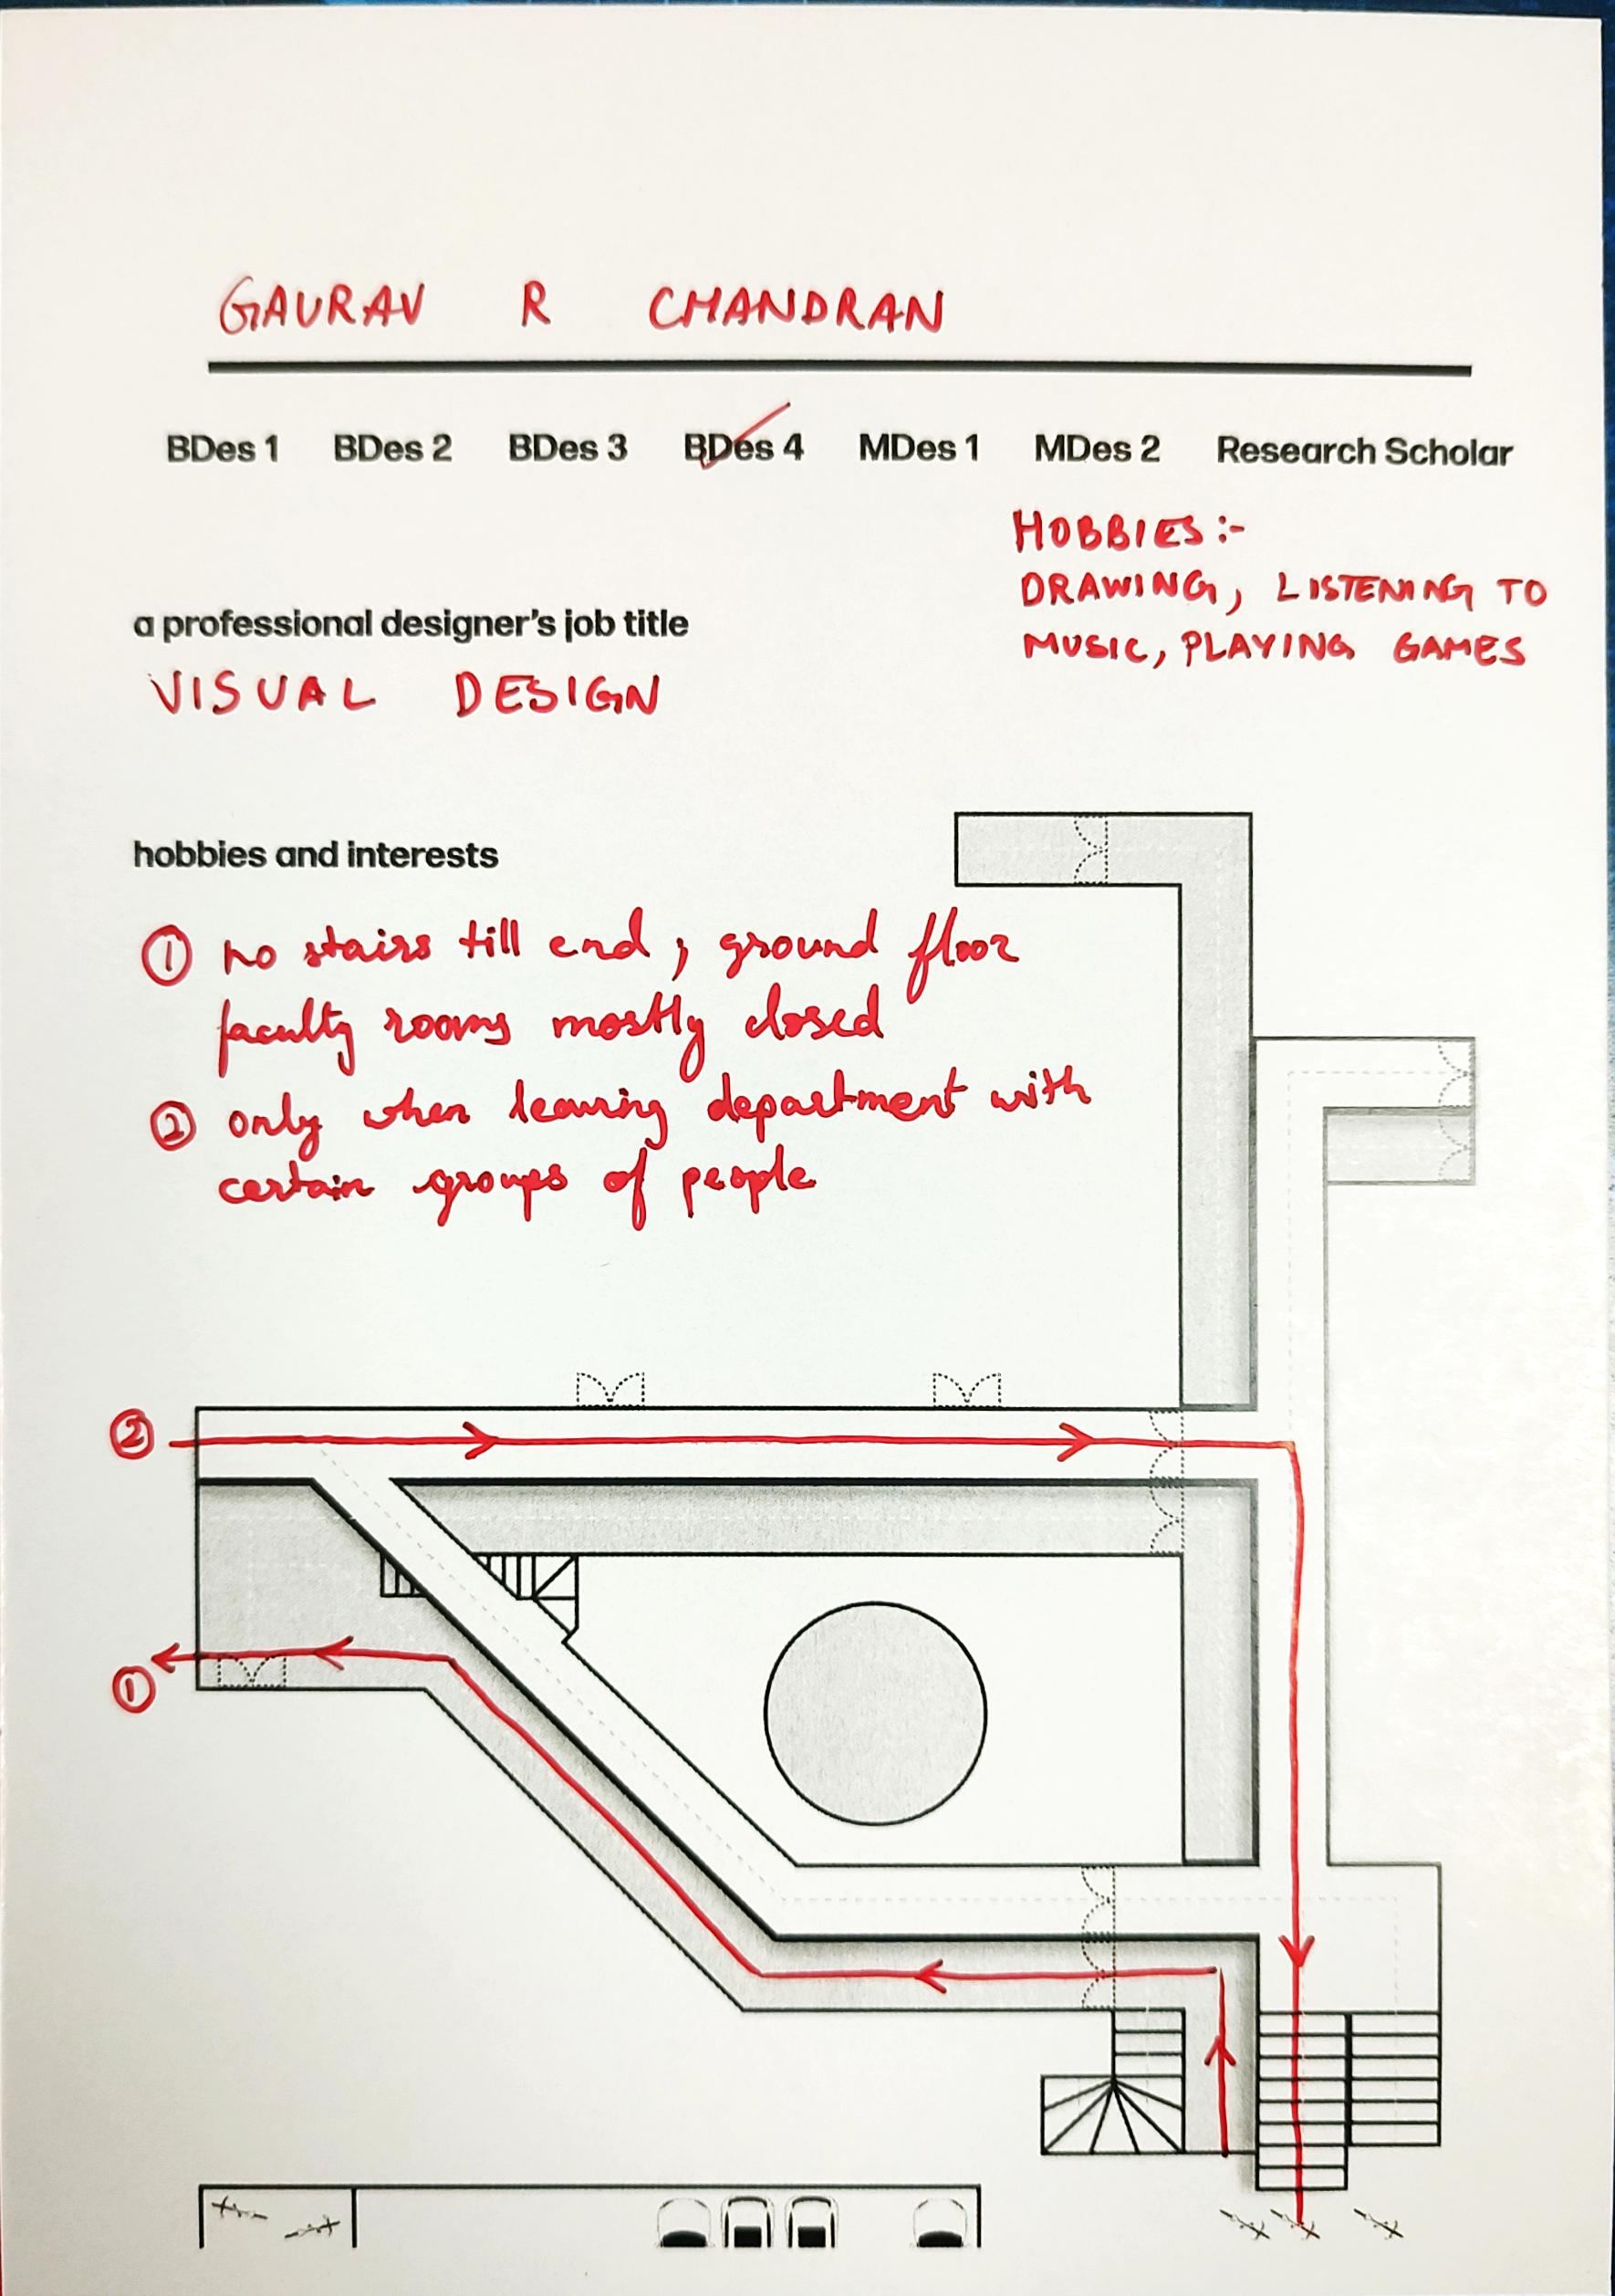 GAURAV R CHANDRAN
BDes 1 BDes 2 BDes 3 BDes 4 MDes 1 MDes 2 Research Scholar
HOBBIES :-
DRAWING, LISTENING TO
MUSIC, PLAYING GAMES
a professional designer's job title
VISUAL DESIGN
hobbies and interests
① no stairs till end ; ground floor
faculty rooms mostly closed
② only when leaving department with
certain groups of people
②
①